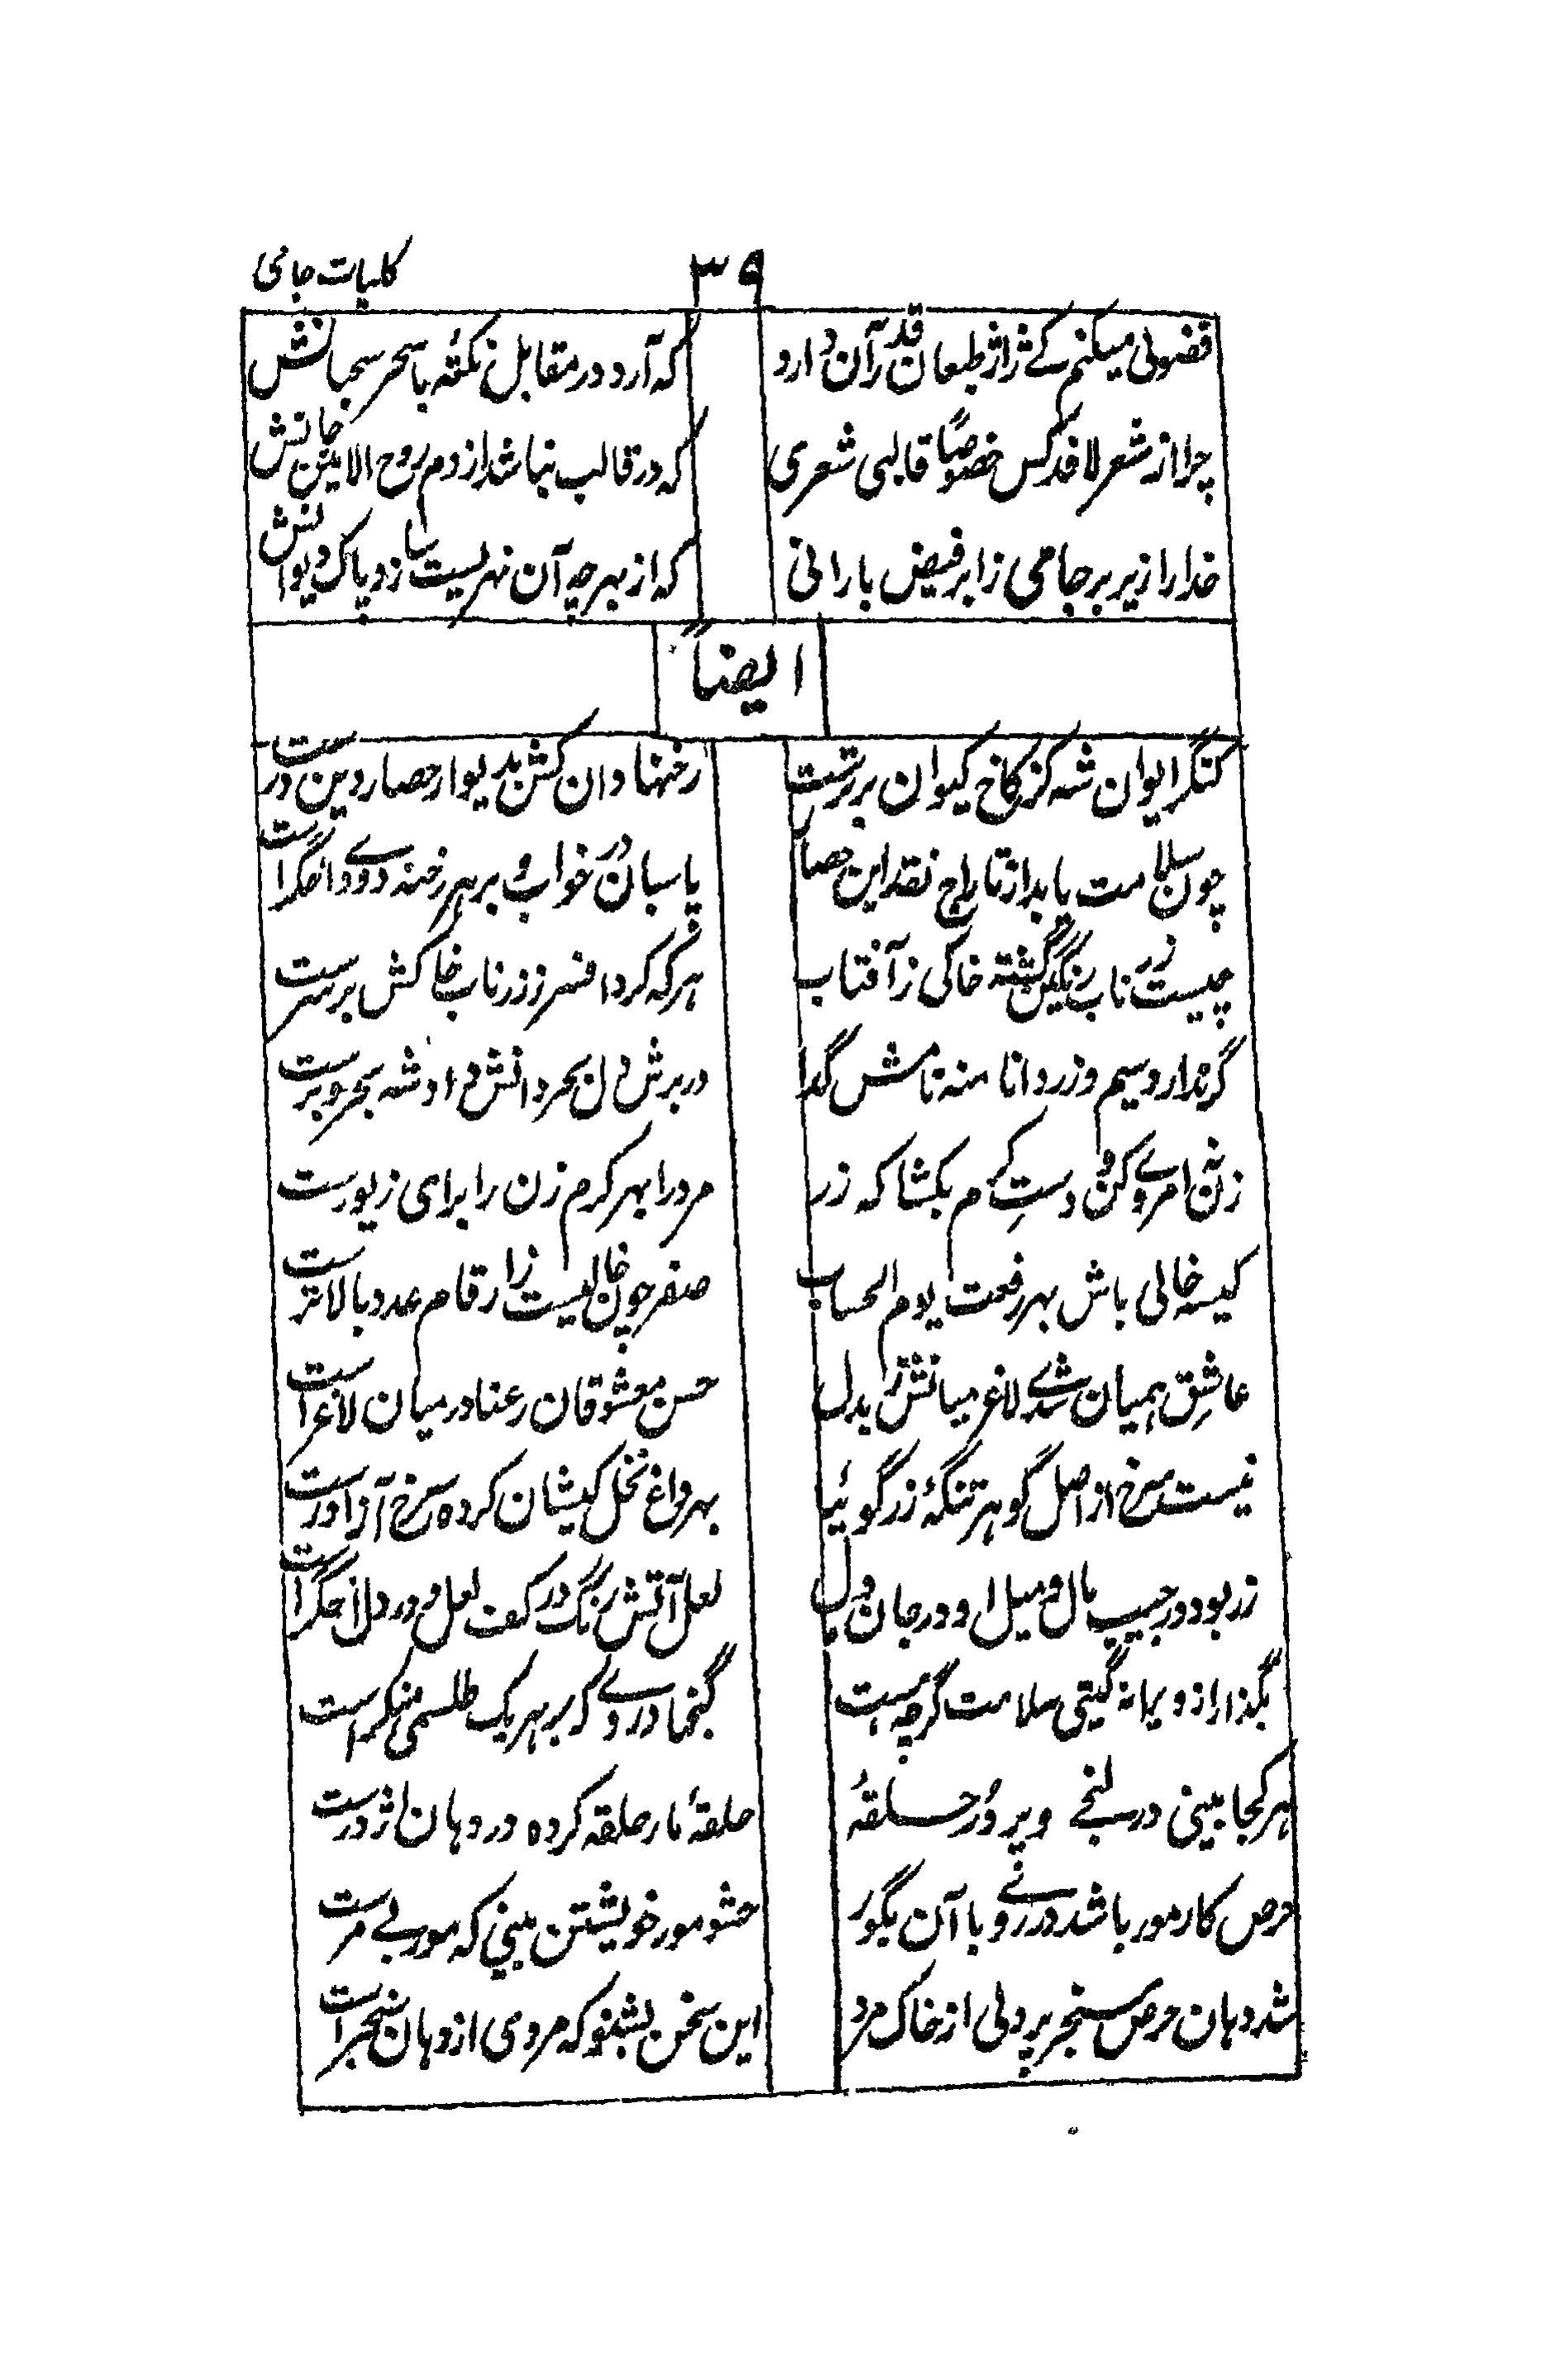 کلیات جامی
۳۹
فضولی میکنم کے ژاژ طبعان قدر آن دارد
که آرد در مقابل نکتهٔ با سحر سحبانش
چرا از شعر لافد کس خصوصاً قالبی شعری
که در قالب نباشد از دم روح الامین جانش
خدارا زیر بر جامی ز ابر فیض بارانی
که از بهر چه آن نهر نیست سازد پاک دیوانش
ایضاً
کنگر ایوان شه کز کاخ کیوان برترست
رخنها دان کش بدیوار حصار دین درست
چون سلامت یابد از تاراج نقد این حصار
پاسبان در خواب و بر هر رخنه دزدے دیگرست
چیست زر ناب رنگین گشته خاکی ز آفتاب
هر که کرد افسر ز زر ناب خاکش بر سرست
گر ندارد سیم و زر دانا منه نامش گدا
در برش دل بحر دانش و او شه بحر و برست
زن نهٔ امروے کن و دستِ کرم بکشا که زر
مرد را بهر کرم زن را برای زیورست
کیسه خالی باش بهر رفعت یوم الحساب
صفر چون خالیست ز ارقام عدد بالاترست
عاشق همیان شدے لاغر میانش ز بدل
حسن معشوقان رعنا در میان لاغرست
نیست سرخ از اصل گوهر تنگهٔ زر گوئیا
بهر داغ بخل کیشان کرده سرخ آذرست
زر بود در جیب مال و میل او در جان و دل
لعل آتش رنگ در کف لعل و در دل اخگرست
بگذر از ویرانه گیتی سلامت گرچه هست
گنجها در وے که بر هر یک طلسمی منکرست
هر کجا بینی در گنجے و بر در حلقهٔ
حلقهٔ مار حلقه کرده در دهان اژدرست
حرص کار مور باشد در رو با آن بگور
حشو مور خویشتن بینی که مور بے مرست
شد دهان حرص سنجر پر ولی از خاک مرد
این سخن بشنو که مروی از دهان سنجرست